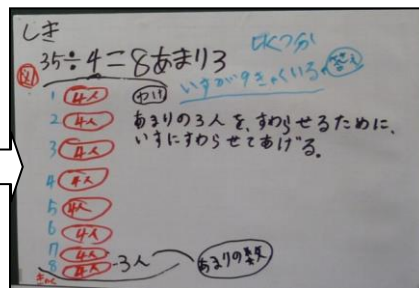 しき
35÷4=8あまり3
図
いすが9きゃくいる。答え
わけ
あまりの3人を、すわらせるために、
いすにすわらせてあげる。
1 4人
2 4人
3 4人
4 4人
5 4人
6 4人
7 4人
8 4人 -3人 あまりの数
きゃく